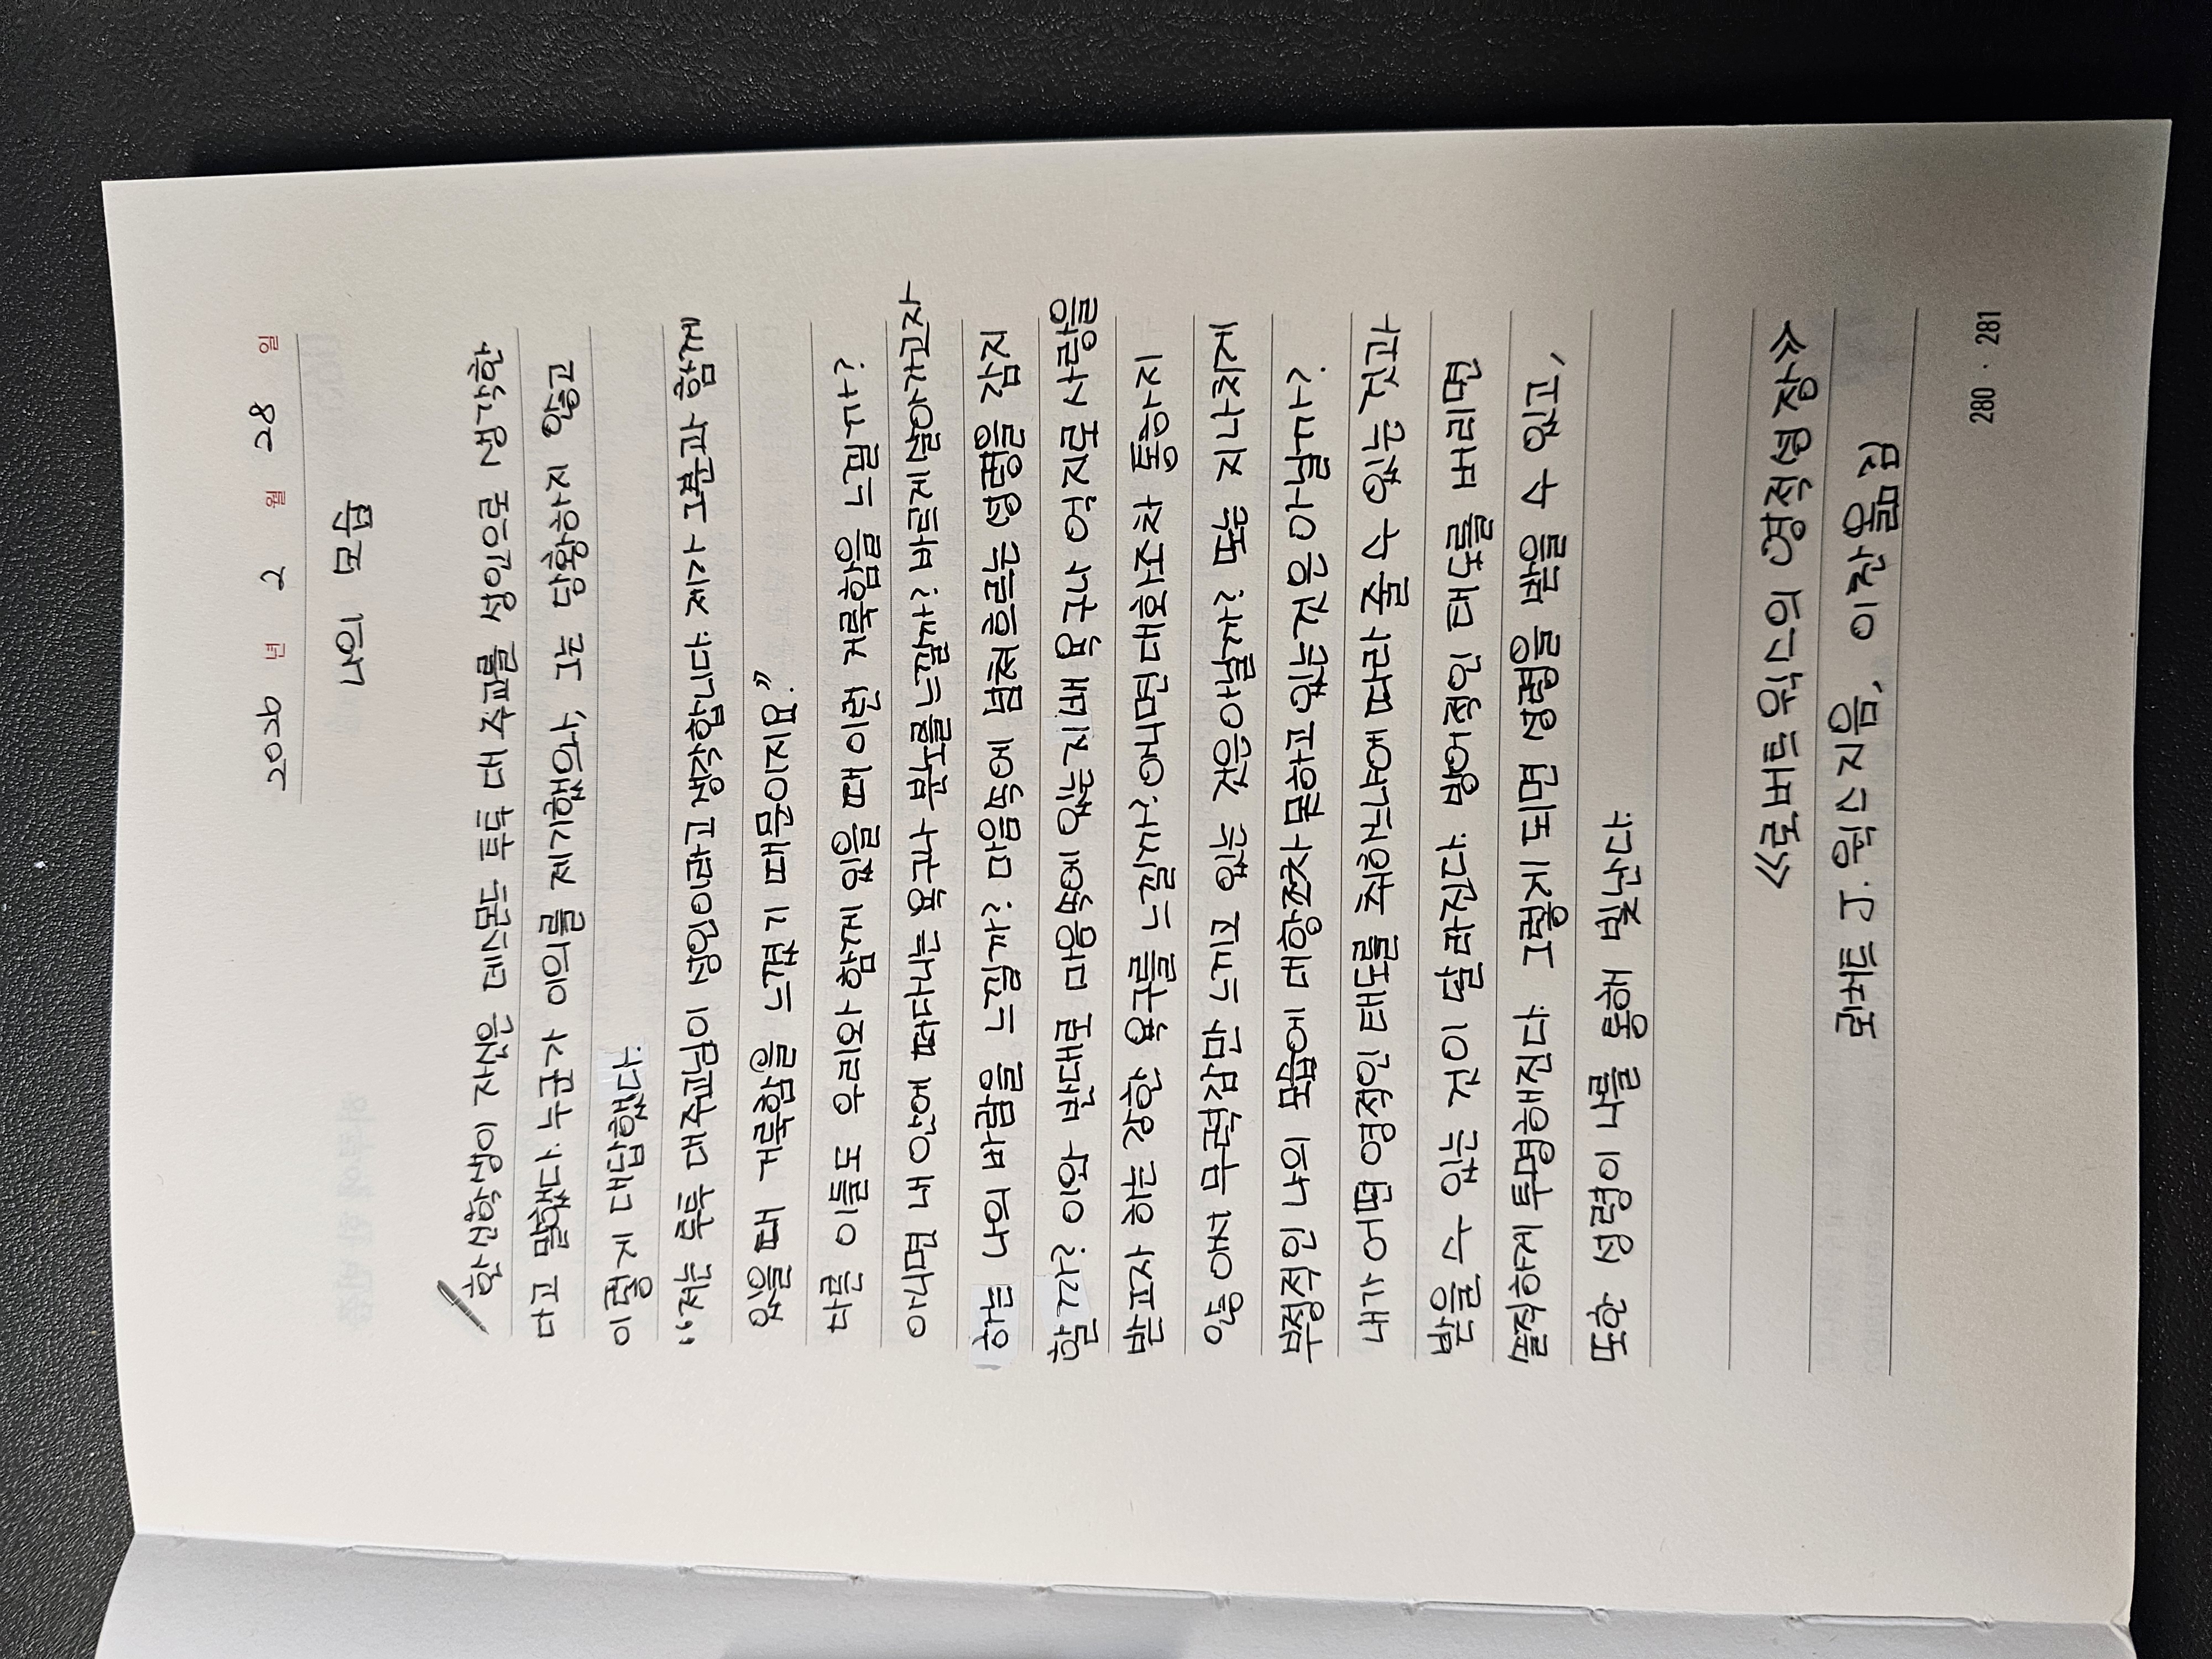 2026 년 2 월 28 일
나의 모 습
한 신학생이 자신은 데스몬드 투투 대 주교를 성인으로 생각한
다고 말했다. 누군가 이의를 제기했으나, 그는 당황하지 않고
이렇게 대답했다.
“저는 투투 대주교님이 성인이라고 생각합니다. 제가 그분과 함께
있을 때 거룩함을 느꼈기 때문이지요.”
다른 이들도 우리와 함께 있을 때 이런 거룩함을 느낄까?
아니면 내 안에 떠다니는 누군가 용납 못할
하는 나의 바람을 느낄까? 마음속에 넘쳐흐르는 성령을 감지
할까? 이와 반대로 마음속에
받고서 하는 강한 욕구를 느낄까? 내 앞에만 대화조차
않아서 무력감만 느끼고 있는 것은 아닐까? 또는 지나치게
부정적인 나의 모습에 대항조차 못하고 있는 것은 아닐까?
내가 어떤 영적인 태도를 취하느냐에 따라 줄 수 있는 것과
받을 수 있는 것이 달라진다. 방어적인 태도를 버리면
솔직하게 투명해진다. 그렇게 되면 성령을 받을 수 있고,
또한 성령이 나를 통해 빛난다.
《로버트 윅스의 영적 성장》
로버트 J. 윅스 지음, 이찬 옮김
280 · 281